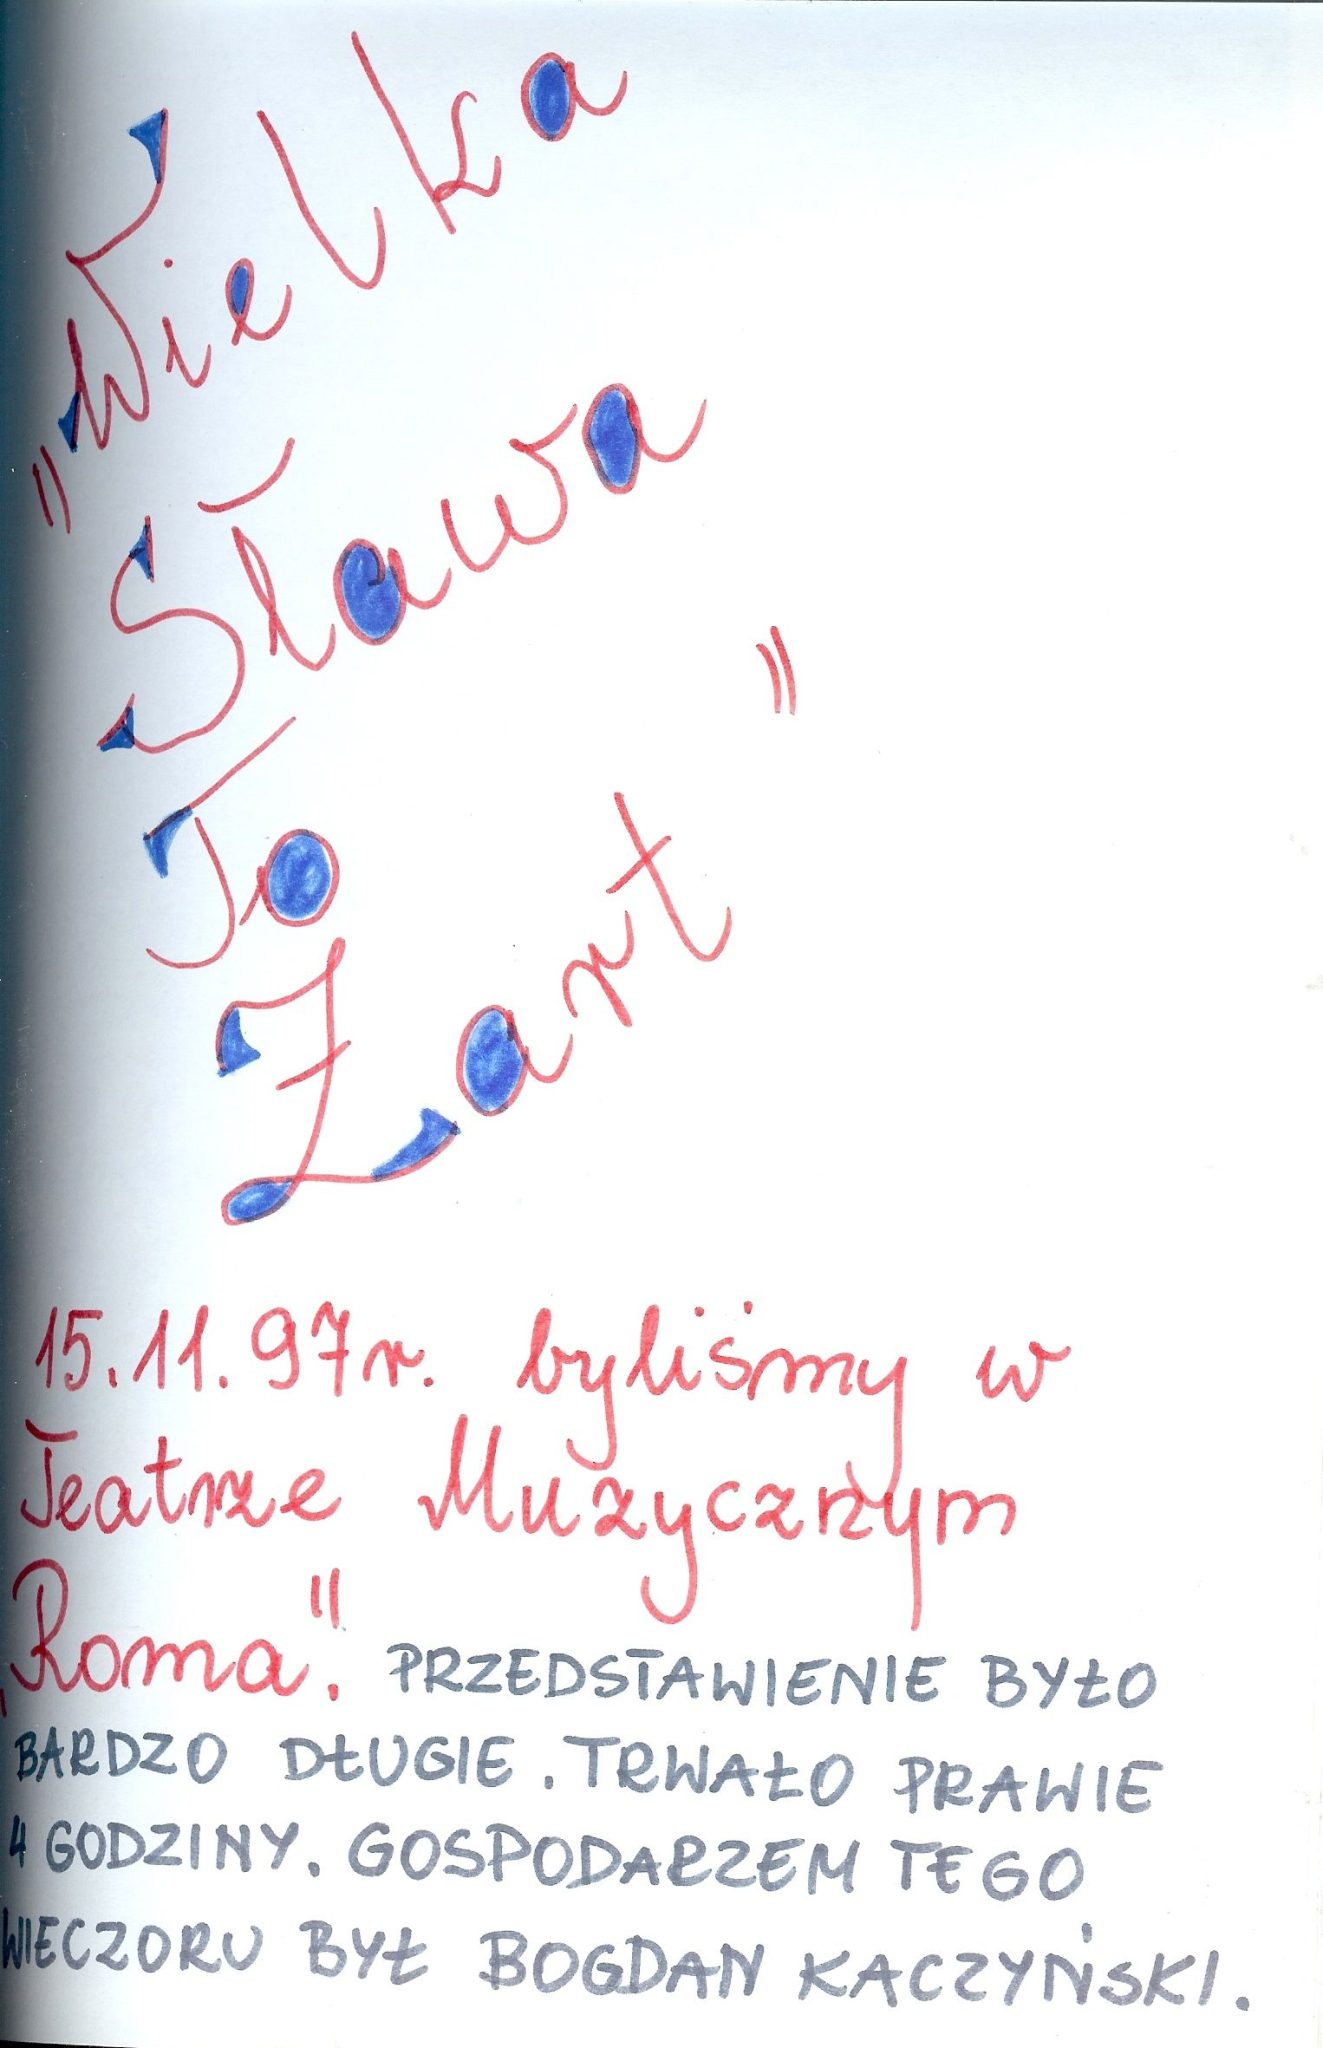 "Wielka
Sława
To
Żart"
15.11.97r. byliśmy w
Teatrze Muzycznym
„Roma". PRZEDSTAWIENIE BYŁO
BARDZO DŁUGIE. TRWAŁO PRAWIE
4 GODZINY. GOSPODARZEM TEGO
WIECZORU BYŁ BOGDAN KACZYŃSKI.